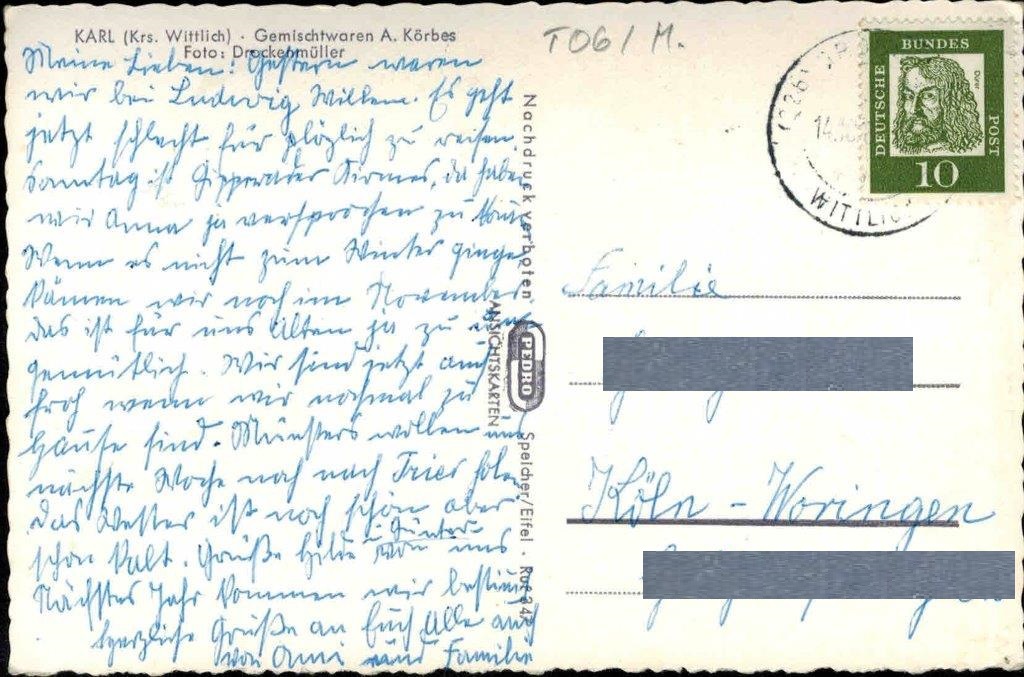 KARL (Krs. Wittlich) · Gemischtwaren A. Körbes
Foto: Drockenmüller
Meine Lieben! Gestern waren
wir bei Ludwig Willem. Es geht
jetzt schlecht für plözlich zu reisen.
Sonntag ist Kirmes, da haben
wir Anna ja versprochen zu
Wenn es nicht zum Winter ginge,
kämen wir noch im November.
das ist für uns Alten ja zu
gemütlich. Wir sind jetzt auch
froh wenn wir nochmal zu
Hause sind. Münsters wollen uns
nächste Woche noch nach Trier holen
das Wetter ist noch schön aber
schon kalt. Grüße Hilde Günter von uns
Nächstes Jahr kommen wir bestimmt
herzliche Grüße an Euch Alle auch
von und Familie
Nachdruck verboten
PEDRO
ANSICHTSKARTEN
Speicher/Eifel · Ruf 347
TOG/M.
DEUTSCHE BUNDES POST
Dürer
10
WITTLICH
Familie
Köln - Woringen